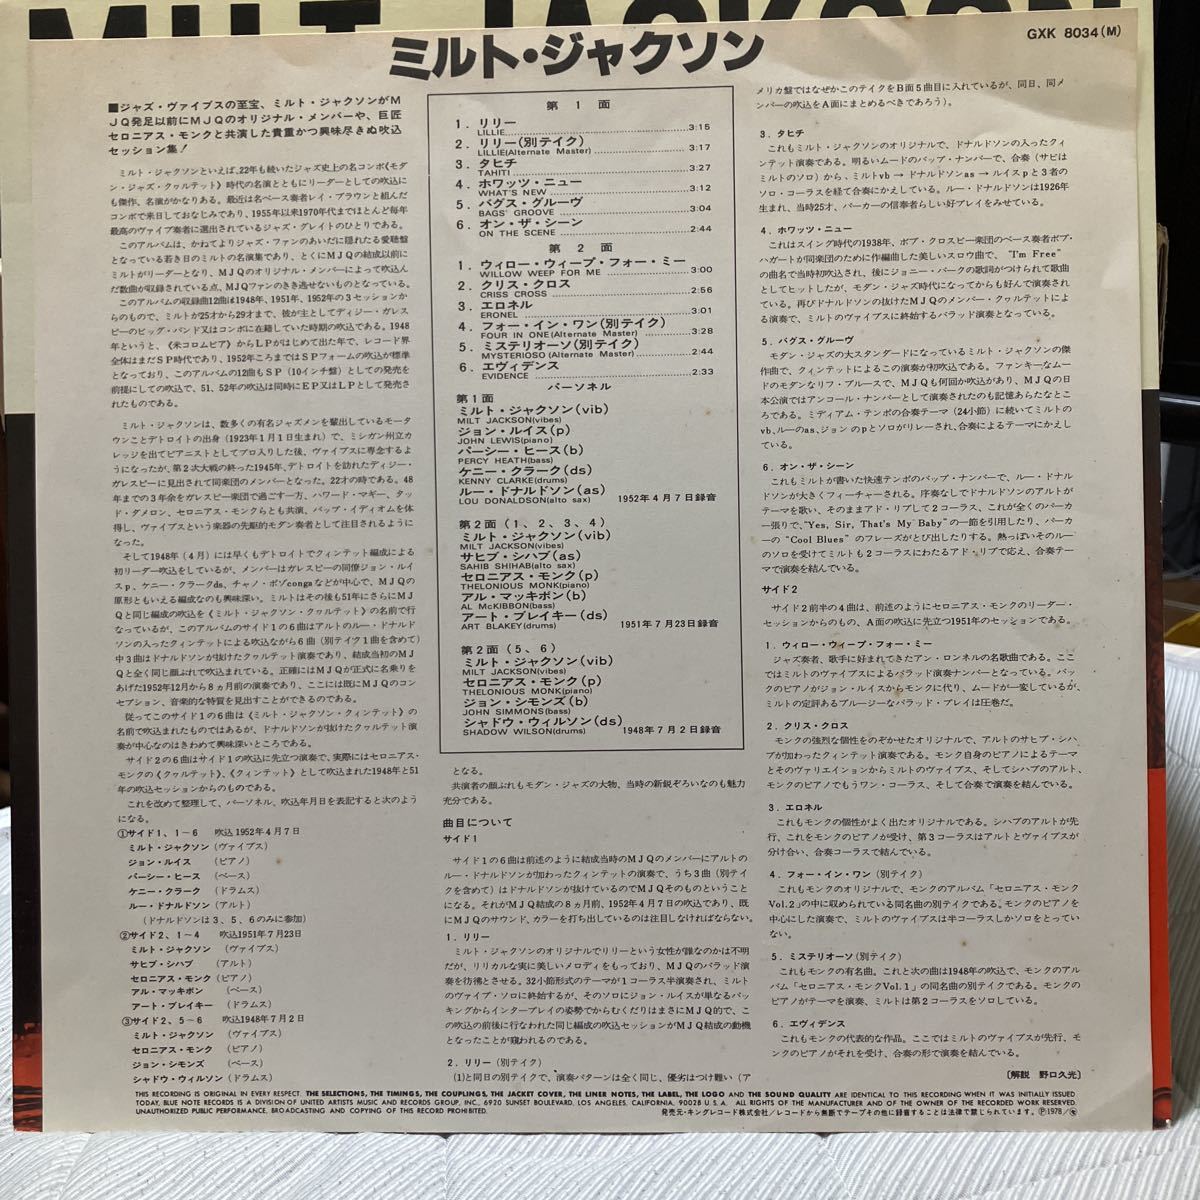 MILT JACKSON
GXK 8034(M)
ミルト・ジャクソン
■ジャズ・ヴァイブスの至宝、ミルト・ジャクソンがM
JQ発足以前にMJQのオリジナル・メンバーや、巨匠
セロニアス・モンクと共演した貴重かつ興味尽きぬ吹込
セッション集!
ミルト・ジャクソンといえば、22年も続いたジャズ史上の名コンボ《モダ
ン・ジャズ・クヮルテット》時代の名演とともにリーダーとしての吹込に
も傑作、名演がかなりある。最近は名ベース奏者レイ・ブラウンと組んだ
コンボで来日しておなじみであり、1955年以来1970年代までほとんど毎年
最高のヴァイブ奏者に選出されているジャズ・グレイトのひとりである。
このアルバムは、かねてよりジャズ・ファンのあいだに隠れたる愛聴盤
となっている若き日のミルトの名演集であり、とくにMJQの結成以前に
ミルトがリーダーとなり、MJQのオリジナル・メンバーによって吹込ん
だ数曲が収録されている点、MJQファンのきき逃せないものとなっている。
このアルバムの収録曲12曲は1948年、1951年、1952年の3セッションか
らのもので、ミルトが25才から29才まで、彼が主としてディジー・ガレス
ピーのビッグ・バンド又はコンボに在籍していた時期の吹込である。1948
年というと、《米コロムビア》からLPがはじめて出た年で、レコード界
全体はまだSP時代であり、1952年ころまではSPフォームの吹込が標準
となっており、このアルバムの12曲もSP(10インチ盤)としての発売を
前提にしての吹込で、51、52年の吹込は同時にEP又はLPとして発売さ
れたものである。
ミルト・ジャクソンは、数多くの有名ジャズメンを輩出しているモータ
ウンことデトロイトの出身(1923年1月1日生まれ)で、ミシガン州立カ
レッジを出てピアニストとしてプロ入りした後、ヴァイブスに専念するよ
うになったが、第2次大戦の終った1945年、デトロイトを訪れたディジー・
ガレスピーに見出されて同楽団のメンバーとなった。22才の時である。48
年までの3年余をガレスピー楽団で過ごす一方、ハワード・マギー、タッ
ド・ダメロン、セロニアス・モンクらとも共演、バップ・イディオムを体
得し、ヴァイブスという楽器の先駆的モダン奏者として注目されるように
なった。
そして1948年(4月)には早くもデトロイトでクィンテット編成による
初リーダー吹込をしているが、メンバーはガレスピーの同僚ジョン・ルイ
スp、ケニー・クラークds、チャノ・ポゾcongaなどが中心で、MJQの
原形ともいえる編成なのも興味深い。ミルトはその後も51年にさらにMJ
Qと同じ編成の吹込を《ミルト・ジャクソン・クヮルテット》の名前で行
なっているが、このアルバムのサイド1の6曲はアルトのルー・ドナルド
ソンの入ったクィンテットによる吹込ながら6曲(別テイク1曲を含めて)
中3曲はドナルドソンが抜けたクヮルテット演奏であり、結成当初のMJ
Qと全く同じ顔ぶれで吹込まれている。正確にはMJQが正式に名乗りを
あげた1952年12月から8ヵ月前の演奏であり、ここには既にMJQのコン
セプション、音楽的な特質を見出すことができるのである。
従ってこのサイド1の6曲は《ミルト・ジャクソン・クィンテット》の
名前で吹込まれたものではあるが、ドナルドソンが抜けたクヮルテット演
奏が中心なのはきわめて興味深いところである。
サイド2の6曲はサイド1の吹込に先立つ演奏で、実際にはセロニアス・
モンクの《クヮルテット》、《クィンテット》として吹込まれた1948年と51
年の吹込セッションからのものである。
これを改めて整理して、パーソネル、吹込年月日を表記すると次のよう
になる。
①サイド1、1-6 吹込1952年4月7日
ミルト・ジャクソン(ヴァイブス)
ジョン・ルイス (ピアノ)
パーシー・ヒース (ベース)
ケニー・クラーク (ドラムス)
ルー・ドナルドソン(アルト)
(ドナルドソンは3、5、6のみに参加)
②サイド2、1-4 吹込1951年7月23日
ミルト・ジャクソン (ヴァイブス)
サヒブ・シハブ (アルト)
セロニアス・モンク (ピアノ)
アル・マッキボン (ベース)
アート・ブレイキー (ドラムス)
③サイド2、5-6 吹込1948年7月2日
ミルト・ジャクソン (ヴァイブス)
セロニアス・モンク (ピアノ)
ジョン・シモンズ (ベース)
シャドウ・ウィルソン (ドラムス)
第1面
1. リリー
LILLIE 3:15
2. リリー(別テイク)
LILLIE(Alternate Master) 3:17
3. タヒチ
TAHITI 3:27
4. ホワッツ・ニュー
WHAT'S NEW 3:12
5. バグス・グルーヴ
BAGS' GROOVE 3:04
6. オン・ザ・シーン
ON THE SCENE 2:44
第2面
1. ウィロー・ウィープ・フォー・ミー
WILLOW WEEP FOR ME 3:00
2. クリス・クロス
CRISS CROSS 2:56
3. エロネル
ERONEL 3:01
4. フォー・イン・ワン(別テイク)
FOUR IN ONE(Alternate Master) 3:28
5. ミステリオーソ(別テイク)
MYSTERIOSO (Alternate Master) 2:44
6. エヴィデンス
EVIDENCE 2:33
パーソネル
第1面
ミルト・ジャクソン(vib)
MILT JACKSON(vibes)
ジョン・ルイス(p)
JOHN LEWIS(piano)
パーシー・ヒース(b)
PERCY HEATH(bass)
ケニー・クラーク(ds)
KENNY CLARKE(drums)
ルー・ドナルドソン(as)
LOU DONALDSON(alto sax) 1952年4月7日録音
第2面(1、2、3、4)
ミルト・ジャクソン(vib)
MILT JACKSON(vibes)
サヒブ・シハブ(as)
SAHIB SHIHAB(alto sax)
セロニアス・モンク(p)
THELONIOUS MONK(piano)
アル・マッキボン(b)
AL McKIBBON(bass)
アート・ブレイキー(ds)
ART BLAKEY(drums) 1951年7月23日録音
第2面(5、6)
ミルト・ジャクソン(vib)
MILT JACKSON(vibes)
セロニアス・モンク(p)
THELONIOUS MONK(piano)
ジョン・シモンズ(b)
JOHN SIMMONS(bass)
シャドウ・ウィルソン(ds)
SHADOW WILSON(drums) 1948年7月2日録音
となる。
共演者の顔ぶれもモダン・ジャズの大物、当時の新鋭ぞろいなのも魅力
充分である。
曲目について
サイド1
サイド1の6曲は前述のように結成当時のMJQのメンバーにアルトの
ルー・ドナルドソンが加わったクィンテットの演奏で、うち3曲(別テイ
クを含めて)はドナルドソンが抜けているのでMJQそのものということ
になる。それがMJQ結成の8ヵ月前、1952年4月7日の吹込であり、既
にMJQのサウンド、カラーを打ち出しているのは注目しなければならない。
1.リリー
ミルト・ジャクソンのオリジナルでリリーという女性が誰なのかは不明
だが、リリカルな実に美しいメロディをもっており、MJQのバラッド演
奏を彷彿とさせる。32小節形式のテーマが1コーラス半演奏され、ミルト
のヴァイブ・ソロに終始するが、そのソロにジョン・ルイスが単なるバッ
キングからインタープレイの姿勢でからむくだりはまさにMJQ的で、こ
の吹込の前後に行なわれた同じ編成の吹込セッションがMJQ結成の動機
となったことが窺われるのである。
2.リリー(別テイク)
(1)と同日の別テイクで、演奏パターンは全く同じ、優劣はつけ難い(ア
メリカ盤ではなぜかこのテイクをB面5曲目に入れているが、同日、同メ
ンバーの吹込をA面にまとめるべきであろう)。
3.タヒチ
これもミルト・ジャクソンのオリジナルで、ドナルドソンの入ったクィ
ンテット演奏である。明るいムードのバップ・ナンバーで、合奏(サビは
ミルトのソロ)から、ミルトvb→ドナルドソンas→ルイスpと3者の
ソロ・コーラスを経て合奏にかえしている。ルー・ドナルドソンは1926年
生まれ、当時25才、パーカーの信奉者らしい好プレイをみせている。
4.ホワッツ・ニュー
これはスイング時代の1938年、ボブ・クロスビー楽団のベース奏者ボブ・
ハガートが同楽団のために作編曲した美しいスロウ曲で、"I'm Free"
の曲名で当時初吹込され、後にジョニー・バークの歌詞がつけられて歌曲
としてヒットしたが、モダン・ジャズ時代になってからも好んで演奏され
ている。再びドナルドソンの抜けたMJQのメンバー・クヮルテットによ
る演奏で、ミルトのヴァイブスに終始するバラッド演奏となっている。
5.バグス・グルーヴ
モダン・ジャズの大スタンダードになっているミルト・ジャクソンの傑
作曲で、クィンテットによるこの演奏が初吹込である。ファンキーなムー
ドのモダンなリフ・ブルースで、MJQも何回か吹込があり、MJQの日
本公演ではアンコール・ナンバーとして演奏されたのも記憶あらたなとこ
ろである。ミディアム・テンポの合奏テーマ(24小節)に続いてミルトの
vb、ルーのas、ジョンのpとソロがリレーされ、合奏によるテーマにかえし
ている。
6.オン・ザ・シーン
これもミルトが書いた快速テンポのバップ・ナンバーで、ルー・ドナル
ドソンが大きくフィーチャーされる。序奏なしでドナルドソンのアルトが
テーマを歌い、そのままアド・リブして2コーラス、これが全くのパーカ
ー張りで、"Yes, Sir, That's My Baby"の一節を引用したり、パーカ
ーの"Cool Blues"のフレーズがとび出したりする。熱っぽいそのルー
のソロを受けてミルトも2コーラスにわたるアド・リブで応え、合奏テー
マで演奏を結んでいる。
サイド2
サイド2前半の4曲は、前述のようにセロニアス・モンクのリーダー・
セッションからのもの、A面の吹込に先立つ1951年のセッションである。
1.ウィロー・ウィープ・フォー・ミー
ジャズ奏者、歌手に好まれてきたアン・ロンネルの名歌曲である。ここ
ではミルトのヴァイブスによるバラッド演奏ナンバーとなっている。バッ
クのピアノがジョン・ルイスからモンクに代り、ムードが一変しているが、
ミルトの定評あるブルージーなバラッド・プレイは圧巻だ。
2.クリス・クロス
モンクの強烈な個性をのぞかせたオリジナルで、アルトのサヒブ・シハ
ブが加わったクィンテット演奏である。モンク自身のピアノによるテーマ
とそのヴァリエイションからミルトのヴァイブス、そしてシハブのアルト、
モンクのピアノでもうワン・コーラス、そして合奏で演奏を結んでいる。
3.エロネル
これもモンクの個性がよく出たオリジナルである。シハブのアルトが先
行、これをモンクのピアノが受け、第3コーラスはアルトとヴァイブスが
分け合い、合奏コーラスで結んでいる。
4.フォー・イン・ワン(別テイク)
これもモンクのオリジナルで、モンクのアルバム「セロニアス・モンク
Vol.2」の中に収められている同名曲の別テイクである。モンクのピアノを
中心にした演奏で、ミルトのヴァイブスは半コーラスしかソロをとってい
ない。
5.ミステリオーソ(別テイク)
これもモンクの有名曲。これと次の曲は1948年の吹込で、モンクのアル
バム「セロニアス・モンクVol.1」の同名曲の別テイクである。モンクの
ピアノがテーマを演奏、ミルトは第2コーラスをソロしている。
6.エヴィデンス
これもモンクの代表的な作品。ここではミルトのヴァイブスが先行、モ
ンクのピアノがそれを受け、合奏の形で演奏を結んでいる。
〔解説 野口久光〕
THIS RECORDING IS ORIGINAL IN EVERY RESPECT. THE SELECTIONS, THE TIMINGS, THE COUPLINGS, THE JACKET COVER, THE LINER NOTES, THE LABEL, THE LOGO AND THE SOUND QUALITY ARE IDENTICAL TO THIS RECORDING WHEN IT WAS INITIALLY ISSUED
TODAY, BLUE NOTE RECORDS IS A DIVISION OF UNITED ARTISTS MUSIC AND RECORDS GROUP, INC., 6920 SUNSET BOULEVARD, LOS ANGELES, CALIFORNIA, 90028 U.S.A. ALL RIGHTS OF THE MANUFACTURER AND OF THE OWNER OF THE RECORDED WORK RESERVED.
UNAUTHORIZED PUBLIC PERFORMANCE, BROADCASTING AND COPYING OF THIS RECORD PROHIBITED.
発売元・キングレコード株式会社/レコードから無断でテープその他に録音することは法律で禁じられています。Ⓟ1978/